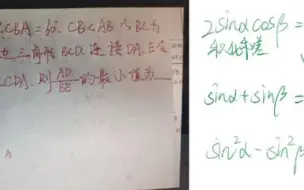 ∠CBA=60°. CB<AB 以BC为
边 三角形 BCD. 连接DA. E在
CDA. 则 AD/BE 的最小值为
A
2sinαcosβ=
积化和差
sinα+sinβ=
sin²α-sin²β